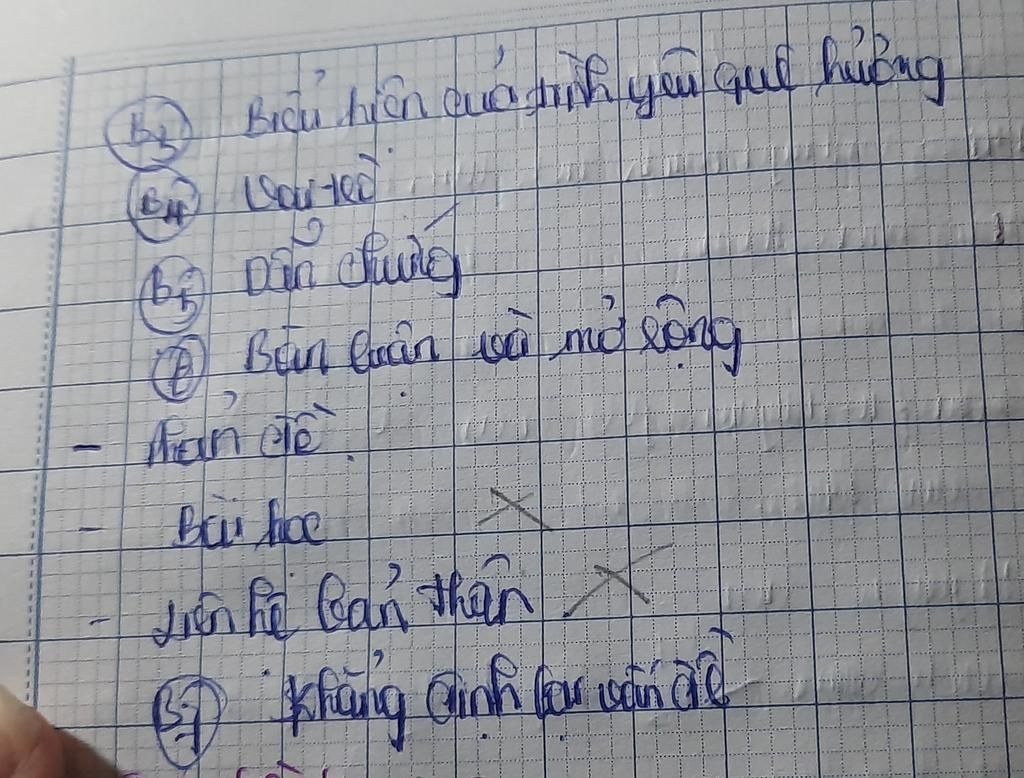 B3 Biểu hiện của tình yêu quê hương
B4 Vai trò
B5 Dẫn chứng
B Bàn luận và mở rộng
- Phản đề
- Bài học
- Liên hệ bản thân
B7 Khẳng định lại vấn đề